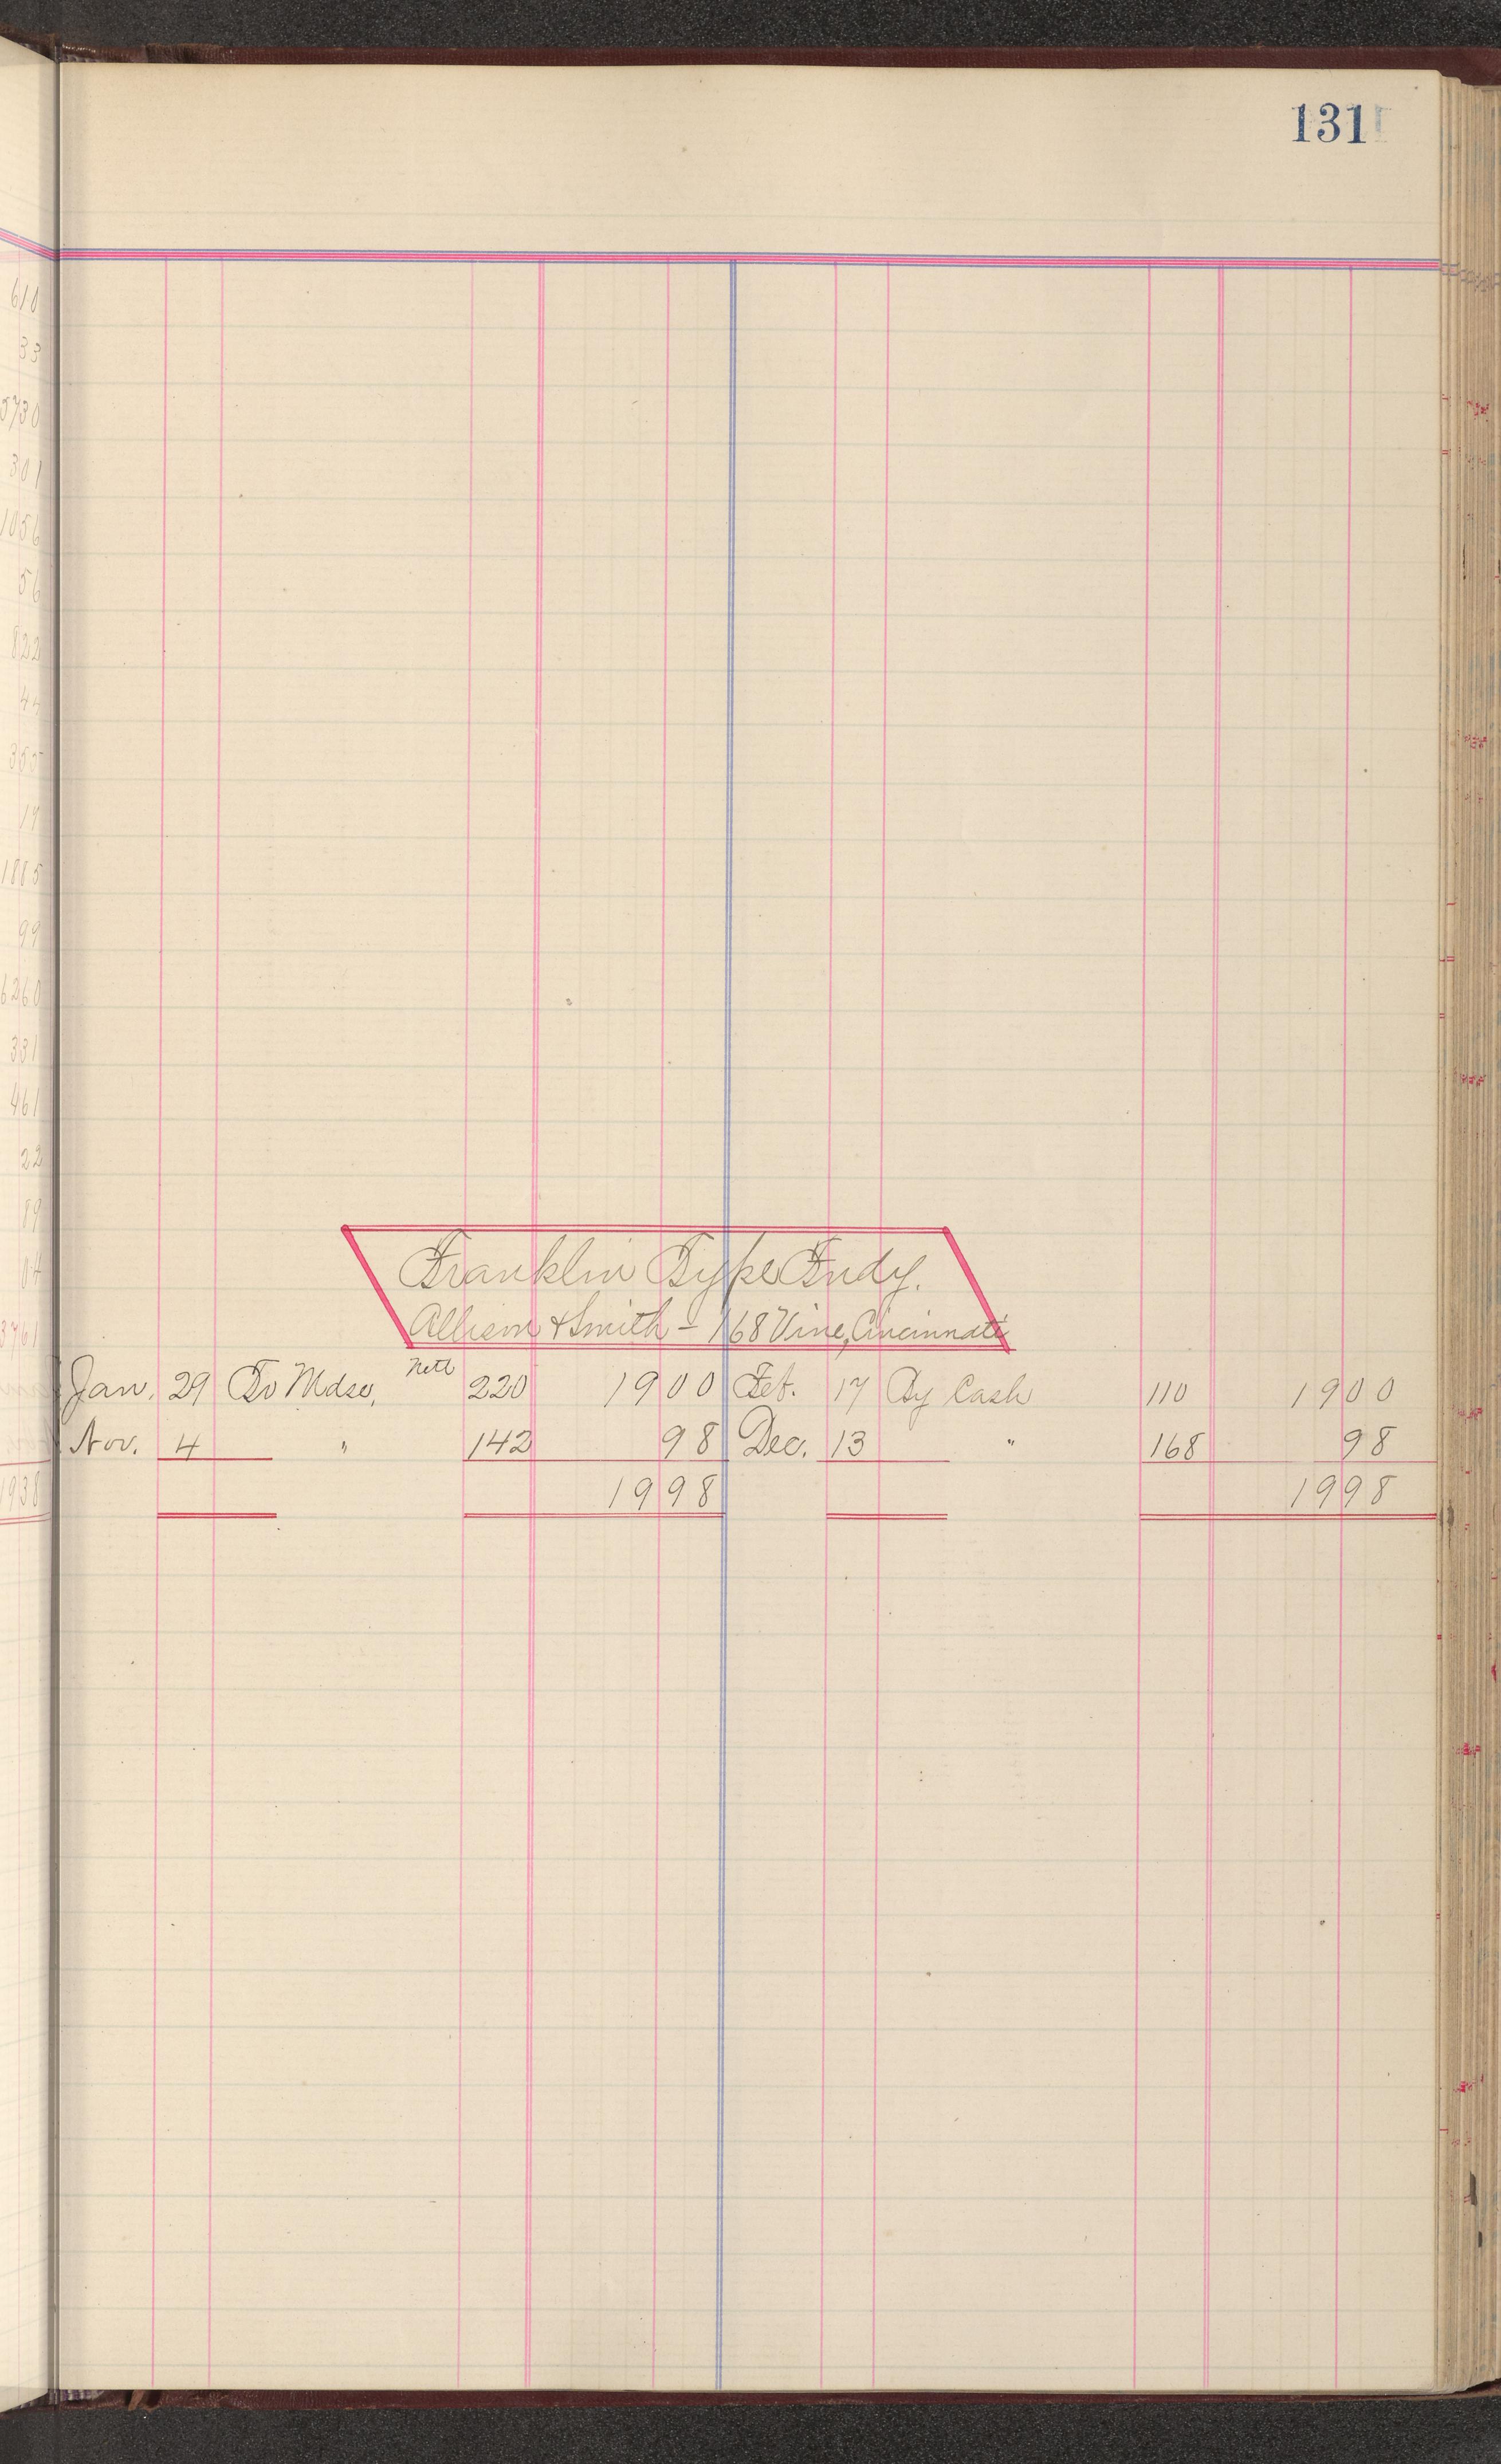 131
610
33
5730
301
1056
56
822
44
355
17
1885
99
6260
331
461
22
89
04
3761
1938
Franklin Type Fndy.
Allison & Smith - 168 Vine, Cincinnati
Jan. 29 To Mdse, Nett 220 1900 Feb. 17 By Cash 110 1900
Nov. 4 " 142 98 Dec. 13 " 168 98
1998 1998